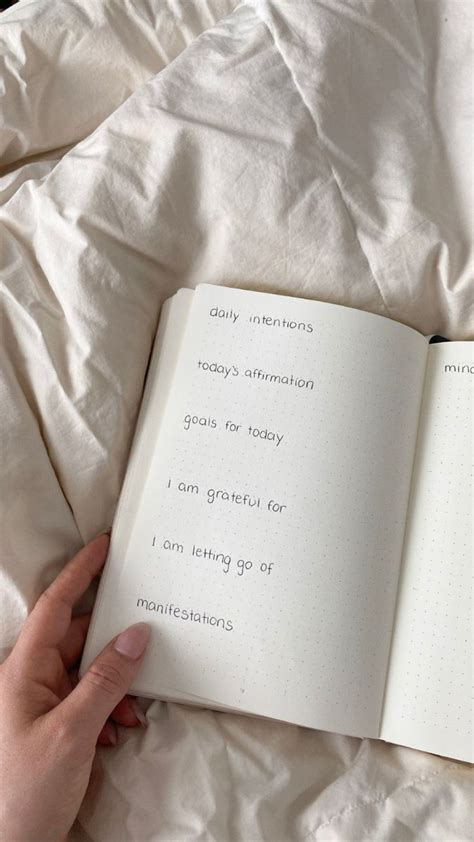 daily intentions
today's affirmation
goals for today
I am grateful for
I am letting go of
manifestations